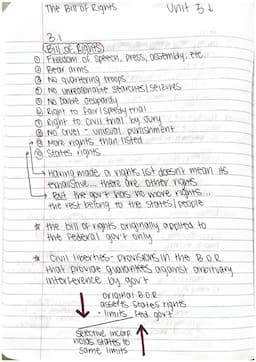 The Bill of Rights Unit 3 ↓
3.1
Bill of Rights
① Freedom of speech, press, assembly, etc
② Bear arms
③ No quartering troops
④ No unreasonable searches/seizures
⑤ No double jeopardy
⑥ Right to fair/speedy trial
⑦ Right to civil trial by jury
⑧ No cruel + unusual punishment
⑨ More rights than listed
⑩ States rights
Having made a rights list doesn't mean its
exhaustive... there are other rights
But the gov't has no more rights...
the rest belong to the states/people
☆ the bill of rights originally applied to
the federal gov't only
☆ Civil liberties - provisions in the B.O.R
that provide guarantees against arbitrary
interference by gov't
original B.O.R
asserts states rights
+ limits fed gov't
selective incorp.
holds states to
same limits